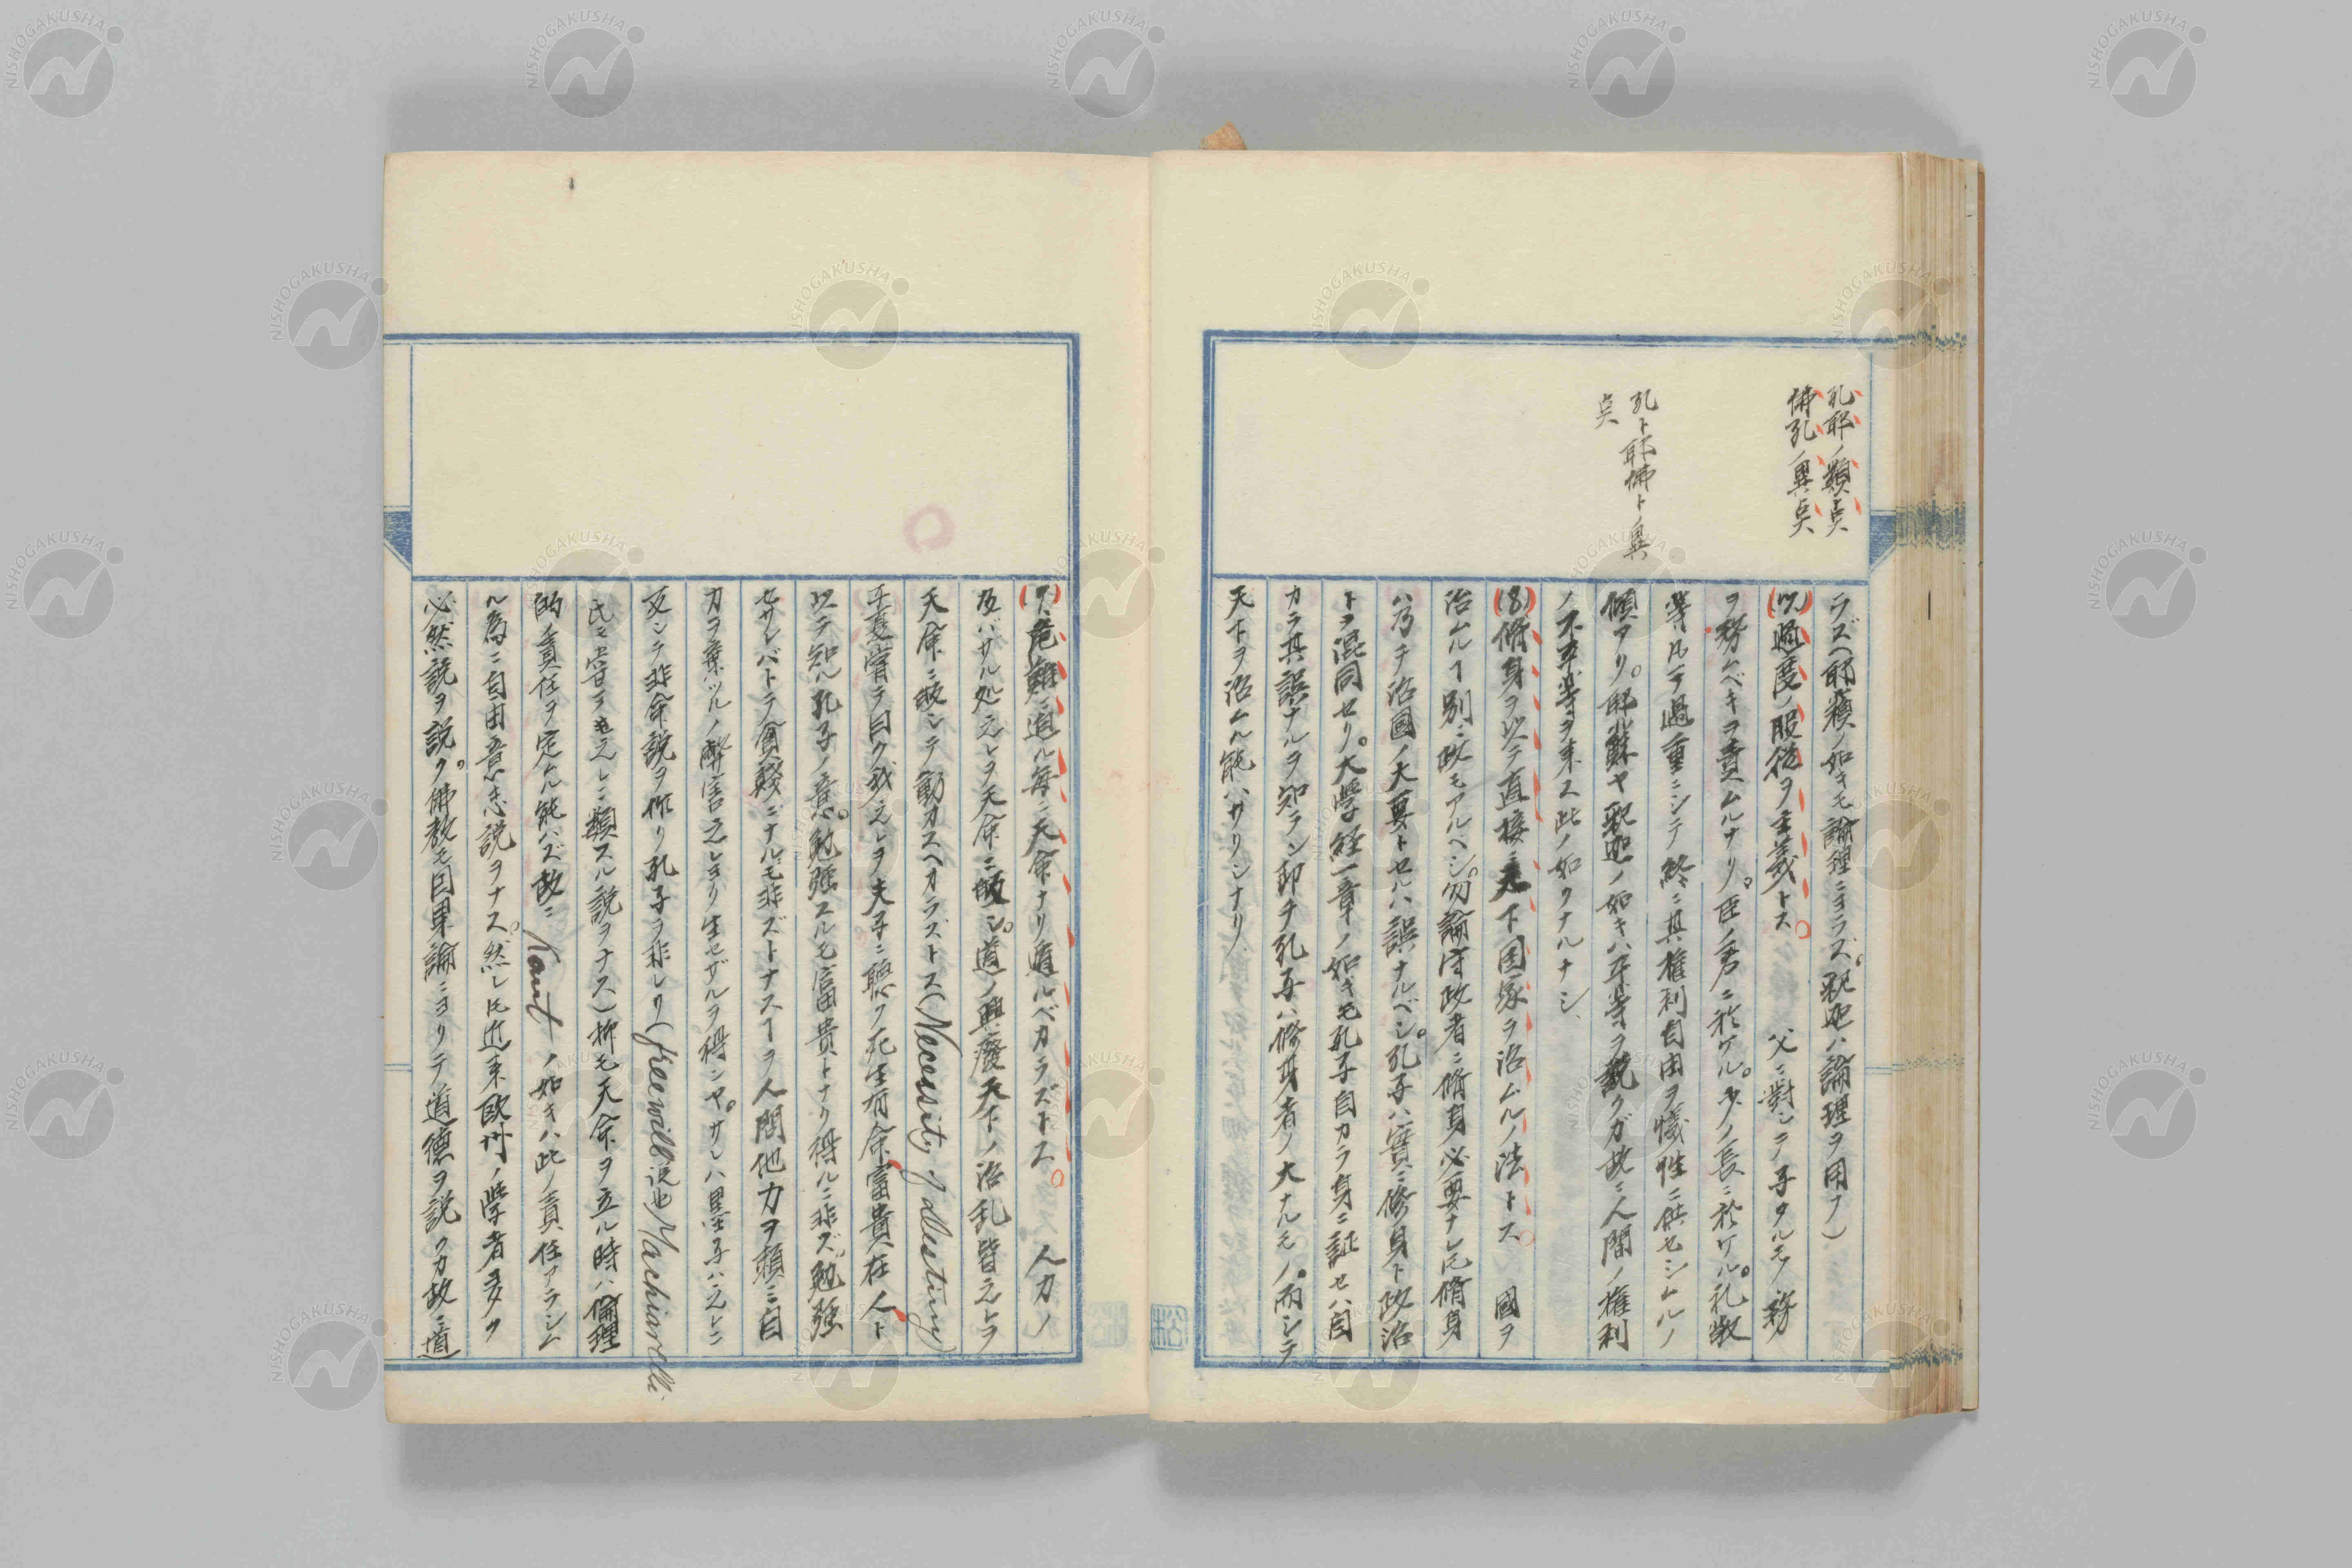 孔耶ノ類点
佛孔ノ異点
孔ト耶佛トノ異
点
ラズヘ耶蘇ノ如キモ論理ニヨラズ。釈迦ハ論理ヲ用ナ)
(7)過度ノ服従ヲ主義トス。 父ニ對シテ子タルモノ務
ヲ務ムベキヲ責ムルナリ。臣ノ君ニ於ケル。少ノ長ニ於ケル。礼数
等凡テ過重ニシテ終ニ其権利自由ヲ犠牲ニ供セシムルノ
傾アリ。耶蘇ヤ釈迦ノ如キハ平等ヲ説クガ故ニ人間ノ権利
ノ不平等ヲ来ス此ノ如クナルナシ
(8)脩身ヲ以テ直接ニ天下国家ヲ治ムルノ法トス。 國ヲ
治ムルヿ別ニ政モアルベシ。勿論守政者ニ脩身必要ナレ𪜈脩身
ハ乃チ治國ノ大要トセルハ誤ナルベシ。孔子ハ實ニ修身ト政治
トヲ混同セリ。大學経一章ノ如キモ孔子自カラ身ニ証セハ自
カラ其誤ナルヲ知ラン即チ孔子ハ修身者ノ大ナルモノ。而シテ
天下ヲ治ムル能ハザリシナリ
(9)危難ニ遭ル毎ニ天命ナリ遁ルベカラズトス。 人力ノ
及バザル処之レヲ天命ニ皈シ。道ノ興廢天下ノ治乱皆之レヲ
天命ニ皈シテ動カスヘカラズトス(Necessity of destiny)
子夏嘗テ曰ク我之レヲ夫子ニ聴ク死生有命富貴在人ト
以テ知ル孔子ノ意。勉強スルモ富貴トナリ得ルニ非ズ。勉強
セザレバトテ貧賤ニナルモ非ズトナスヿヲ人間他力ヲ頼ミ自
力ヲ棄ツルノ弊害之レヨリ生セザルヲ得ンヤ。サレハ墨子ハ之レニ
反シテ非命説ヲ作リ孔子ヲ非レリ(free will説也Machiavelli
氏モ嘗テ之レニ類スル説ヲナス)抑モ天命ヲ立ル時ハ倫理
的ノ責任ヲ定ムル能ハズ故ニKantノ如キハ此ノ責任アラシム
ル為ニ自由意志説ヲナス。然レ𪜈近来欧州ノ学者多ク
必然説ヲ説ク。佛教モ因果論ニヨリテ道徳ヲ説クカ故ニ道